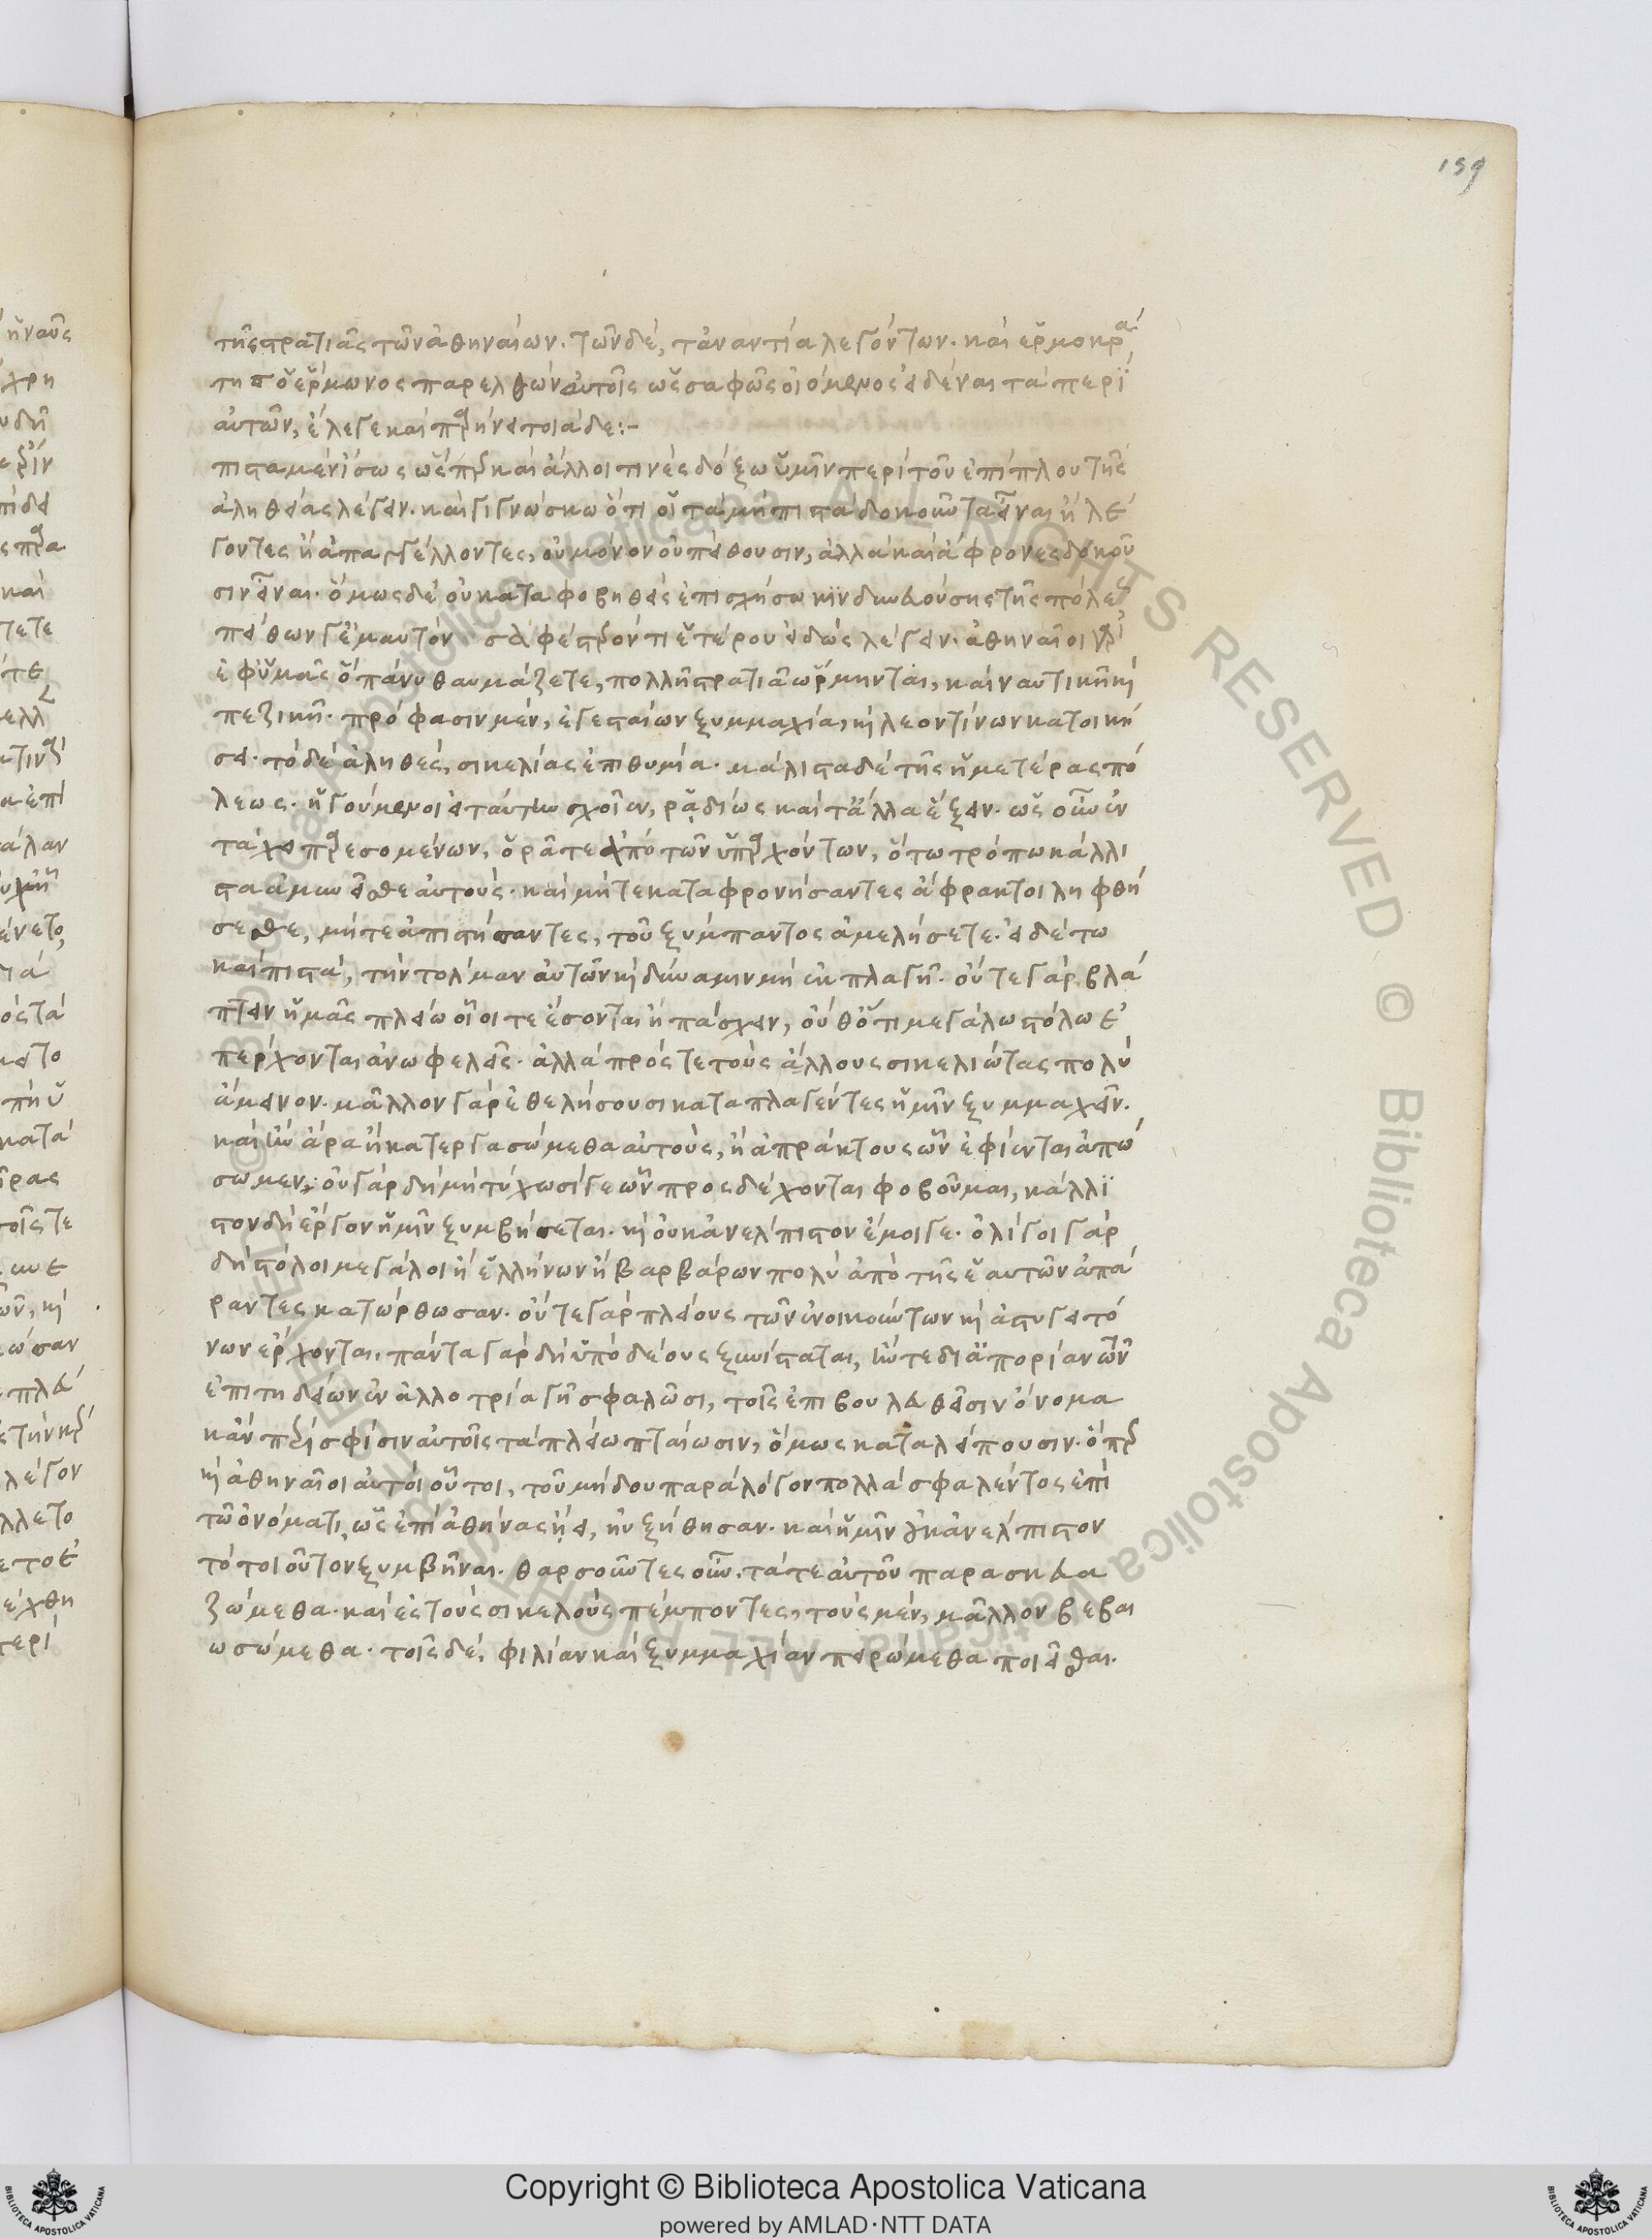 159
τῆς στρατιᾶς τῶν ἀθηναίων. τῶν δὲ, τἀναντία λεγόντων. καὶ ἑρμοκρά
της ὁ ἕρμωνος παρελθὼν αὐτοῖς ὡς σαφῶς οἰόμενος εἰδέναι τὰ περὶ
αὐτῶν, ἔλεγε καὶ παρήνει τοιάδε:-
πιστα μὲν ἴσως ὥσπερ καὶ ἄλλοι τινὲς δόξω ὑμῖν περὶ τοῦ ἐπίπλου τῆς
ἀληθείας λέγειν. καὶ γιγνώσκω ὅτι οἱ τὰ μὴ πιστὰ δοκοῦντα εἶναι ἢ λέ
γοντες ἢ ἀπαγγέλλοντες, οὐ μόνον οὐ πείθουσιν, ἀλλὰ καὶ ἄφρονες δοκοῦ
σιν εἶναι. ὅμως δὲ οὐ καταφοβηθεὶς ἐπισχήσω κινδυνευούσης τῆς πόλεως
πείθων γε ἐμαυτὸν σαφέστερόν τι ἑτέρου εἰδὼς λέγειν. ἀθηναῖοι γὰρ
ἐφ' ὑμᾶς ὃ πάνυ θαυμάζετε, πολλῇ στρατιᾷ ὥρμηνται, καὶ ναυτικῇ καὶ
πεζικῇ. πρόφασιν μὲν, ἐγεσταίων ξυμμαχίᾳ, καὶ λεοντίνων κατοική
σει. τὸ δὲ ἀληθὲς, σικελίας ἐπιθυμίᾳ. μάλιστα δὲ τῆς ἡμετέρας πό
λεως. ἡγούμενοι εἰ ταύτην σχοῖεν, ῥᾳδίως καὶ τἄλλα ἕξειν. ὡς οὖν ἐν
τάχει παρεσομένων, ὁρᾶτε ἀπὸ τῶν ὑπαρχόντων, ὅτω τρόπω κάλλι
στα ἀμυνεῖσθε αὐτούς. καὶ μήτε καταφρονήσαντες ἄφρακτοι ληφθή
σεσθε, μήτε ἀπιστήσαντες, τοῦ ξύμπαντος ἀμελήσετε. εἰ δέ τω
καὶ πιστὰ, τὴν τόλμαν αὐτῶν καὶ δύναμιν μὴ ἐκπλαγῇ. οὔτε γὰρ βλά
πτειν ἡμᾶς πλείω οἷοί τε ἔσονται ἢ πάσχειν, οὔθ' ὅτι μεγάλω στόλω ἐ
πέρχονται ἀνωφελεῖς. ἀλλὰ πρός τε τοὺς ἄλλους σικελιώτας πολὺ
ἄμεινον. μᾶλλον γὰρ ἐθελήσουσι καταπλαγέντες ἡμῖν ξυμμαχεῖν.
καὶ ἢν ἄρα ἢ κατεργασώμεθα αὐτοὺς, ἢ ἀπράκτους ὧν ἐφίενται ἀπώ
σωμεν, οὐ γὰρ δὴ μὴ τύχωσί γε ὧν προσδέχονται φοβοῦμαι, κάλλι
στον δὴ ἔργον ἡμῖν ξυμβήσεται. καὶ οὐκ ἀνέλπιστον ἔμοιγε. ὀλίγοι γὰρ
δὴ στόλοι μεγάλοι ἢ ἑλλήνων ἢ βαρβάρων πολὺ ἀπὸ τῆς ἑαυτῶν ἀπά
ραντες κατώρθωσαν. οὔτε γὰρ πλείους τῶν ἐνοικούντων καὶ ἀστυγειτό
νων ἔρχονται. πάντα γὰρ δὴ ὑπὸ δέους ξυνίσταται, ἤν τε δι' ἀπορίαν τῶν
ἐπιτηδείων ἐν ἀλλοτρίᾳ γῇ σφαλῶσι, τοῖς ἐπιβουλευθεῖσιν ὄνομα
κἂν περὶ σφίσιν αὐτοῖς τὰ πλείω πταίωσιν, ὅμως καταλείπουσιν. ὅπερ
καὶ ἀθηναῖοι αὐτοὶ οὗτοι, τοῦ μήδου παρὰ λόγον πολλὰ σφαλέντος ἐπὶ
τῷ ὀνόματι, ὡς ἐπ' ἀθήνας ᾔει, ηὐξήθησαν. καὶ ἡμῖν οὐκ ἀνέλπιστον
τὸ τοιοῦτον ξυμβῆναι. θαρσοῦντες οὖν. τά τε αὐτοῦ παρασκευα
ζώμεθα. καὶ ἐς τοὺς σικελοὺς πέμποντες, τοὺς μὲν, μᾶλλον βεβαι
ωσώμεθα. τοῖς δὲ, φιλίαν καὶ ξυμμαχίαν πειρώμεθα ποιεῖσθαι.
Copyright © Biblioteca Apostolica Vaticana
powered by AMLAD·NTT DATA